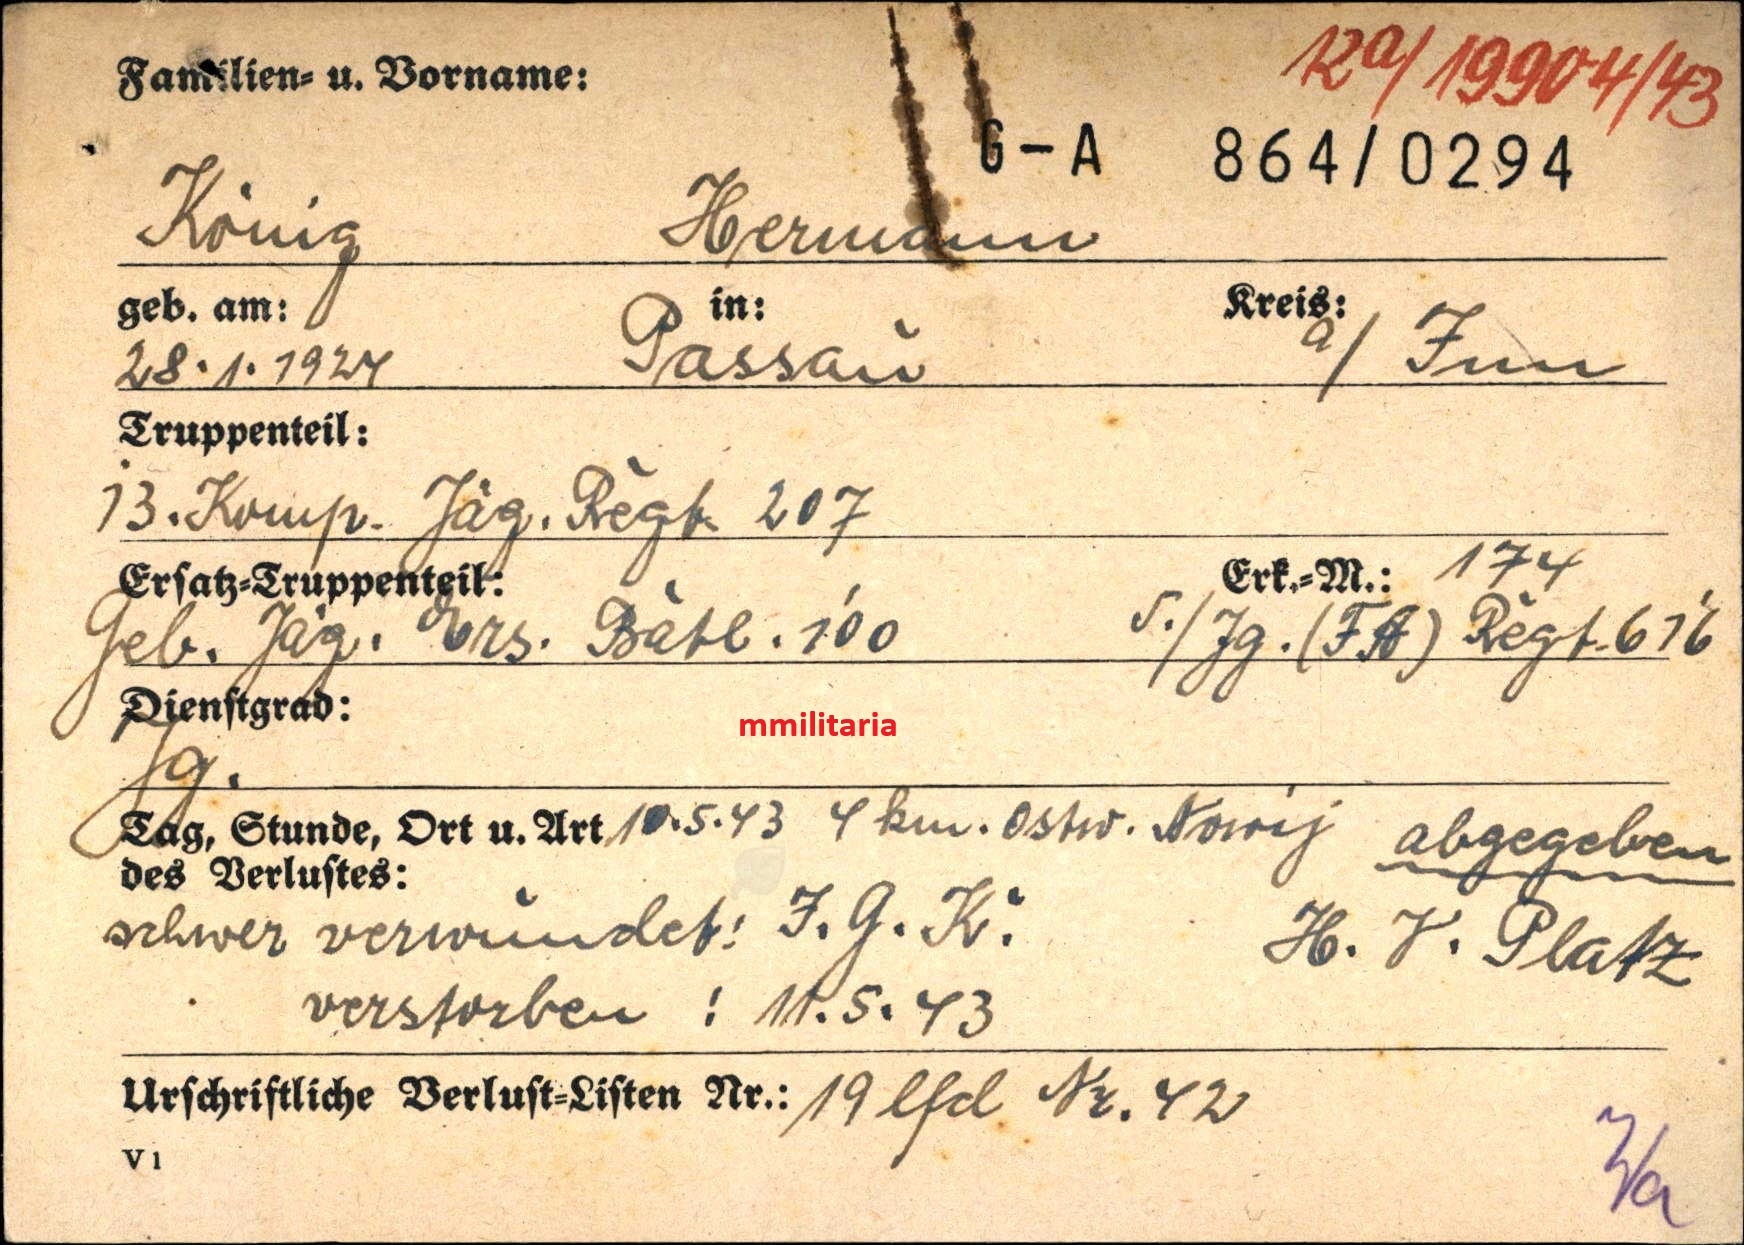 12a/19904/43
Familien- u. Vorname:
G-A 864/0294
König Hermann
geb. am: in: Kreis:
28.1.1924 Passau a/ Inn
Truppenteil:
13. Komp. Jäg. Regt. 207
Ersatz-Truppenteil: Erk.-M.: 174
Geb. Jäg. Ers. Batl. 100 5./Jg. (FA) Regt. 616
Dienstgrad:
Jg.
mmilitaria
Tag, Stunde, Ort u. Art 10.5.43 4 km. ostw. abgegeben
des Verlustes:
schwer verwundet: I. G. K. H. V. Platz
verstorben : 11.5.43
Urschriftliche Verlust-Listen Nr.: 19 lfd Nr. 42
V 1